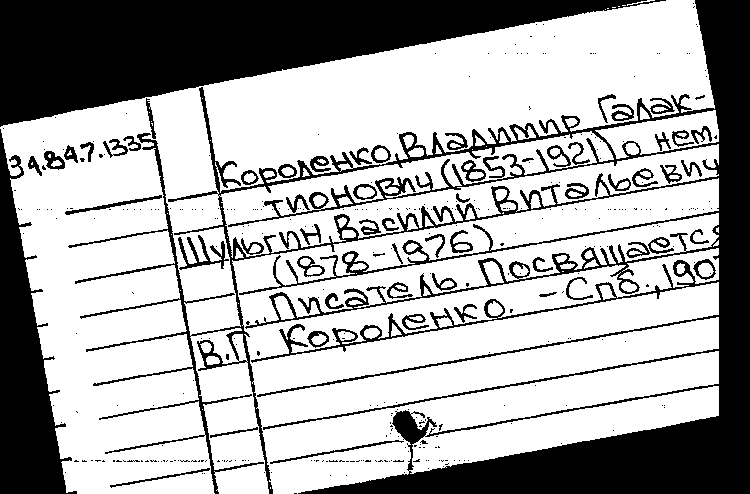 34.84.7.1335
Короленко, Владимир Галак-
тионович (1853-1921), о нем.
Шульгин, Василий Витальевич
(1878-1976).
...Писатель. Посвящается
В.Г. Короленко. - Спб., 1907